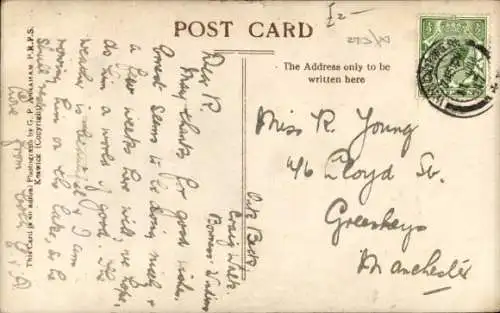 POST CARD
£2-
The Address only to be
written here
Miss R. Young
46 Lloyd St.
Greenheys
Manchester
Oak Bank
Craig Walk
Dear R
Many thanks for good wishes.
Ernest seems to be doing nicely &
a few weeks here will, we hope,
do him a world of good. The
weather is beautiful & I am
rowing him on the lake, so he
should
Love from
This Card is an actual Photograph by G. P. ABRAHAM F.R.P.S.
Keswick (Copyright)